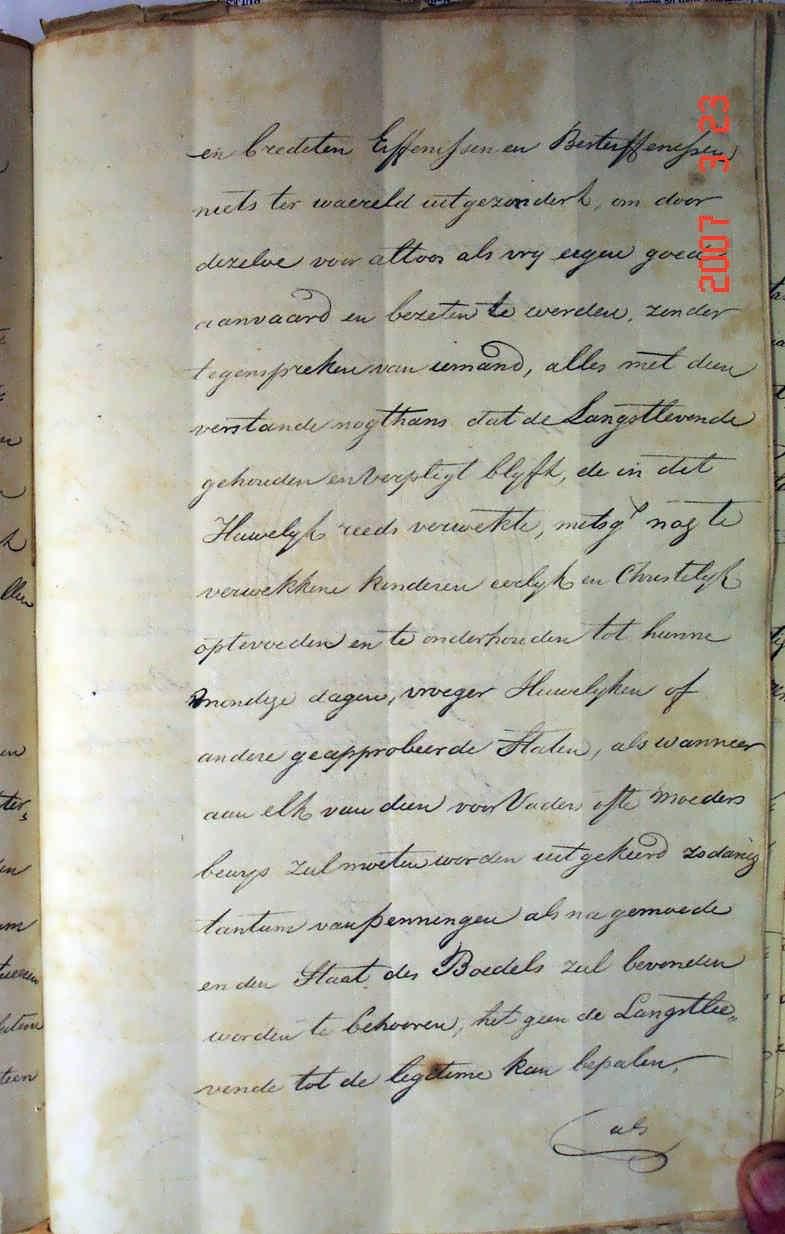 en Credeten Erffenissen en Besterffenissen
niets ter waereld uitgezonderd, om door
dezelve voor altoos als vry eigen goed
aanvaard en bezeten te werden, zonder
tegenspreken van iemand, alles met dien
verstande nogthans dat de Langstlevende
gehouden en verpligt blyft, de in dit
Huwelyk reeds verwekte, mitsgs nog te
verwekkene kinderen eerlyk en Christelyk
optevoeden en te onderhouden tot hunne
mondige dagen, vroeger Huwelyken of
andere geapprobeerde Staten, als wanneer
aan elk van dien voor Vaders ofte Moeders
bewys zal moeten worden uitgekeerd zodanig
tantum van penningen als na gemoede
en den Staat des Boedels zal bevonden
worden te behooren, het geen de Langstle„
vende tot de legitime kan bepalen,
als
2007 3 23